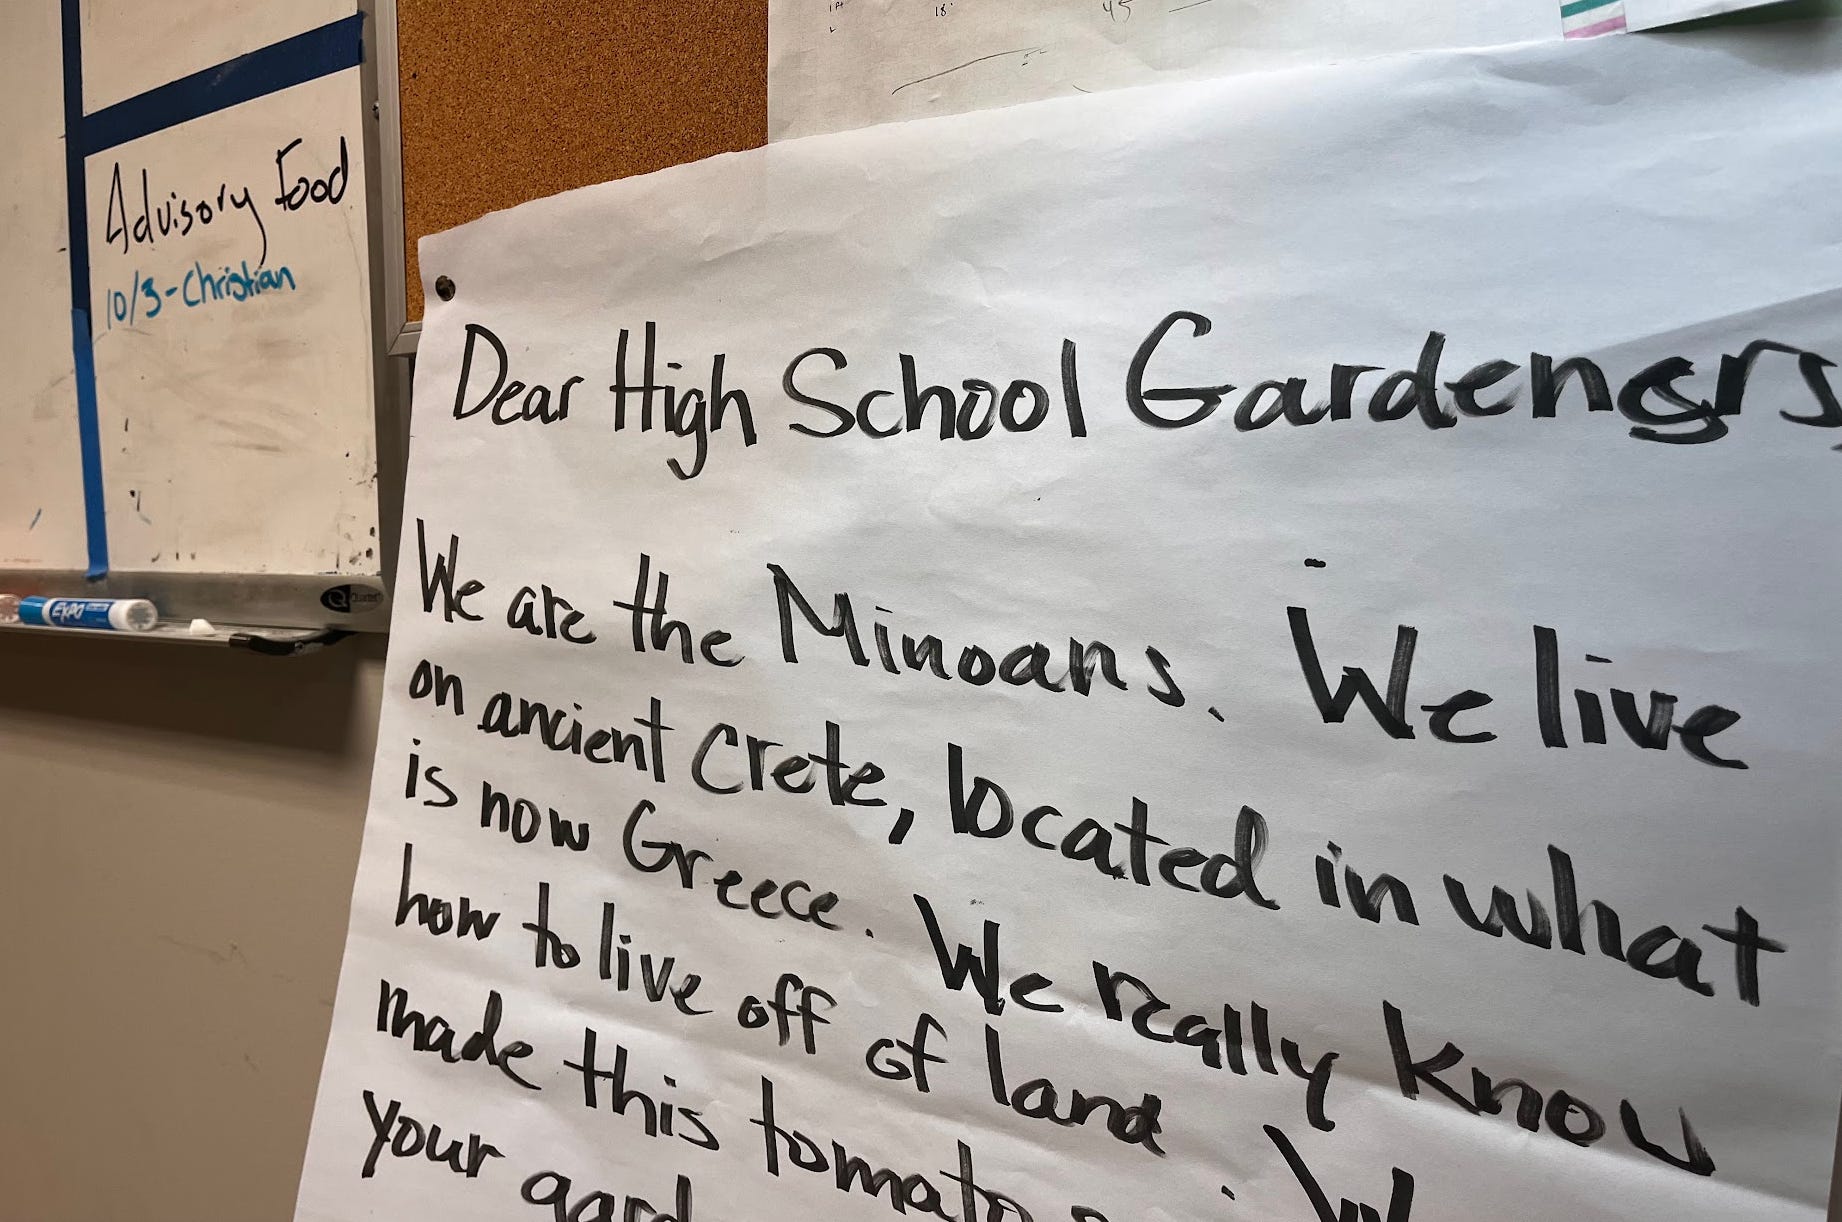 Advisory Food
10/3-Christian
EXPO
Quartet
18
45
Dear High School Gardeners,
We are the Minoans. We live
on ancient Crete, located in what
is now Greece. We really know
how to live off of land. We
made this tomato
your gard